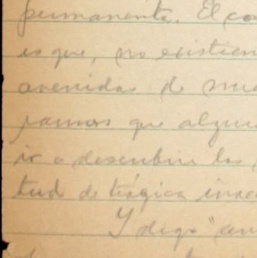 permanente. El co
es que, no existien
avenidas de nue
ramos que algun
ir a descubrir los
tud de trágica inac
Y digo "an